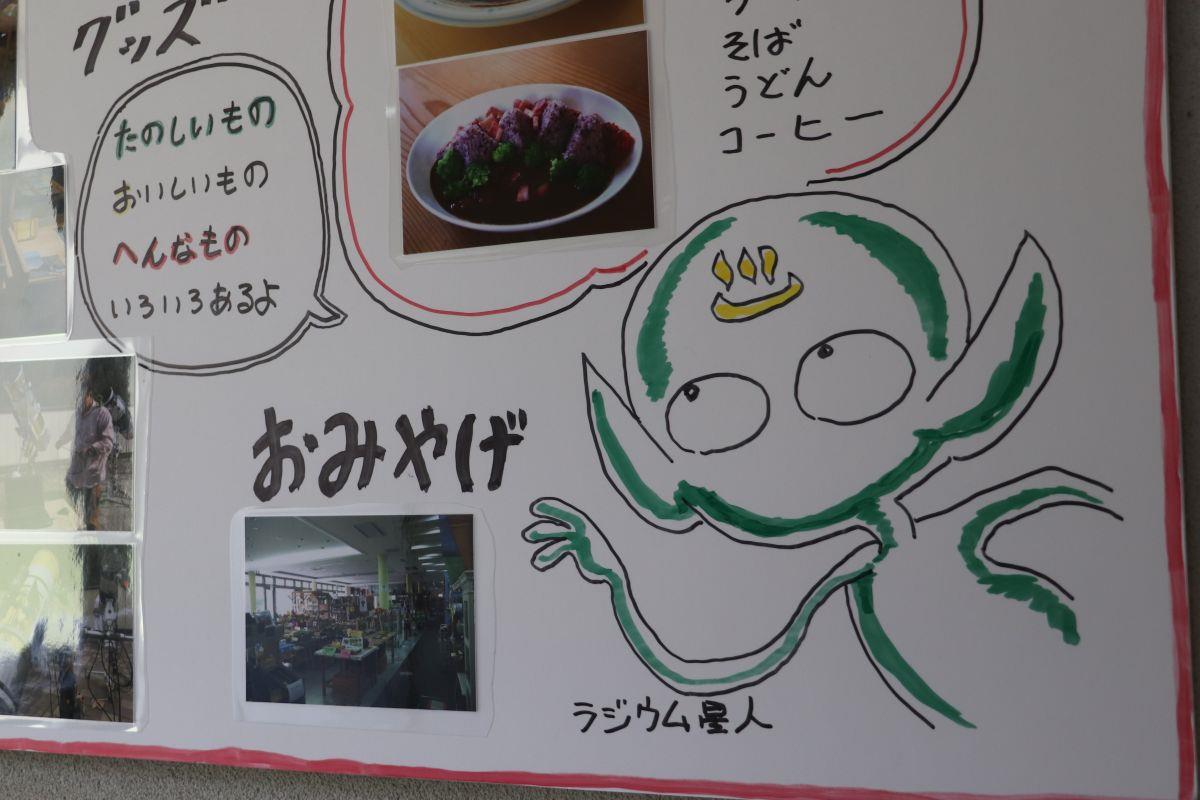 グッズ
たのしいもの
おいしいもの
へんなもの
いろいろあるよ
そば
うどん
コーヒー
おみやげ
ラジウム星人